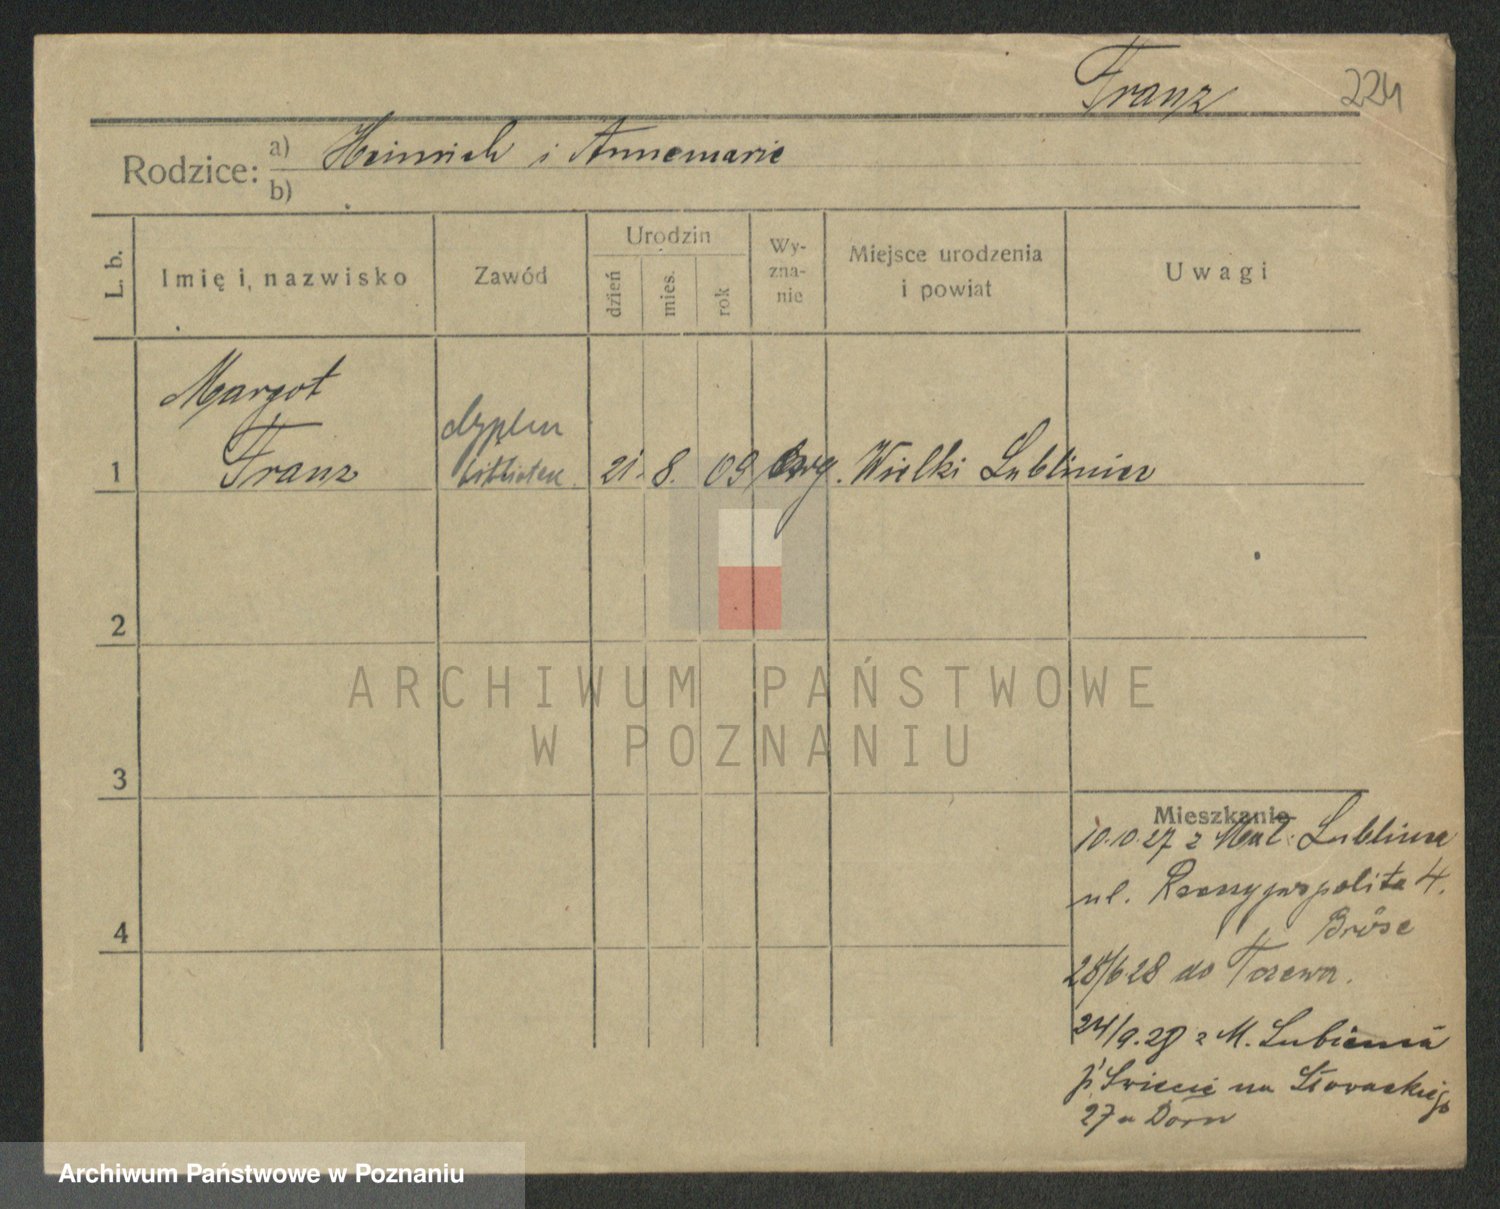 Franz 224
Rodzice: a) Heinrich i Annemarie
b)
L. b. Imię i nazwisko Zawód Urodzin dzień mies. rok Wy-zna-nie Miejsce urodzenia i powiat Uwagi
Margot
1 Franz dyplom bibliotek. 21. 8. 09 ewg. Wielki Lubliniec
2
3
4
Mieszkanie
10.10.27 z Mał. Lublina
ul. Rzeczypospolita 4.
Bröse
28/6 28 do Tczewa.
24/9.28 z M. Lubienia
p. Świecie na Słowackiego
27 u Dorn
ARCHIWUM PAŃSTWOWE
W POZNANIU
Archiwum Państwowe w Poznaniu